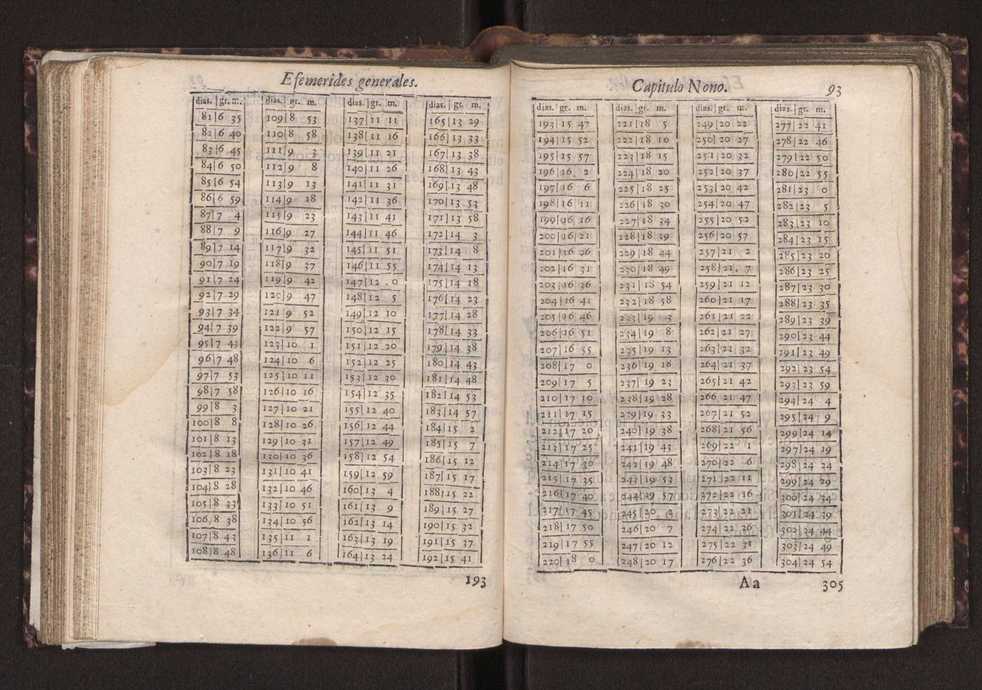 Efemerides generales.
dias. gr. m. dias. gr. m. dias. gr. m. dias. gr. m.
81 6 35 109 8 53 137 11 11 165 13 29
82 6 40 110 8 58 138 11 16 166 13 33
83 6 45 111 9 3 139 11 21 167 13 38
84 6 50 112 9 8 140 11 26 168 13 43
85 6 54 113 9 13 141 11 31 169 13 48
86 6 59 114 9 18 142 11 36 170 13 53
87 7 4 115 9 23 143 11 41 171 13 58
88 7 9 116 9 27 144 11 46 172 14 3
89 7 14 117 9 32 145 11 51 173 14 8
90 7 19 118 9 37 146 11 55 174 14 13
91 7 24 119 9 42 147 12 0 175 14 18
92 7 29 120 9 47 148 12 5 176 14 23
93 7 34 121 9 52 149 12 10 177 14 28
94 7 39 122 9 57 150 12 15 178 14 33
95 7 43 123 10 1 151 12 20 179 14 38
96 7 48 124 10 6 152 12 25 180 14 43
97 7 53 125 10 11 153 12 30 181 14 48
98 7 58 126 10 16 154 12 35 182 14 53
99 8 3 127 10 21 155 12 40 183 14 57
100 8 8 128 10 26 156 12 44 184 15 2
101 8 13 129 10 31 157 12 49 185 15 7
102 8 18 130 10 36 158 12 54 186 15 12
103 8 23 131 10 41 159 12 59 187 15 17
104 8 28 132 10 46 160 13 4 188 15 22
105 8 33 133 10 51 161 13 9 189 15 27
106 8 38 134 10 56 162 13 14 190 15 32
107 8 43 135 11 1 163 13 19 191 15 37
108 8 48 136 11 6 164 13 24 192 15 41
193
Capitulo Nono. 93
dias. gr. m. dias. gr. m. dias. gr. m. dias. gr. m.
193 15 47 221 18 5 249 20 22 277 22 41
194 15 52 222 18 10 250 20 27 278 22 46
195 15 57 223 18 15 251 20 32 279 22 50
196 16 2 224 18 20 252 20 37 280 22 55
197 16 6 225 18 25 253 20 42 281 23 0
198 16 11 226 18 30 254 20 47 282 23 5
199 16 16 227 18 34 255 20 52 283 23 10
200 16 21 228 18 39 256 20 57 284 23 15
201 16 26 229 18 44 257 21 2 285 23 20
202 16 31 230 18 49 258 21 7 286 23 25
203 16 36 231 18 54 259 21 12 287 23 30
204 16 41 232 18 58 260 21 17 288 23 35
205 16 46 233 19 3 261 21 22 289 23 39
206 16 51 234 19 8 262 21 27 290 23 44
207 16 55 235 19 13 263 21 32 291 23 49
208 17 0 236 19 18 264 21 37 292 23 54
209 17 5 237 19 23 265 21 42 293 23 59
210 17 10 238 19 28 266 21 47 294 24 4
211 17 15 239 19 33 267 21 52 295 24 9
212 17 20 240 19 38 268 21 56 299 24 14
213 17 25 241 19 43 269 22 1 297 24 19
214 17 30 242 19 48 270 22 6 298 24 24
215 17 35 243 19 53 271 22 11 299 24 29
216 17 40 244 19 57 272 22 16 300 24 34
217 17 45 245 20 2 273 22 21 301 24 39
218 17 50 246 20 7 274 22 26 302 24 44
219 17 55 247 20 12 275 22 31 303 24 49
220 18 0 248 20 17 276 22 36 304 24 54
Aa 305